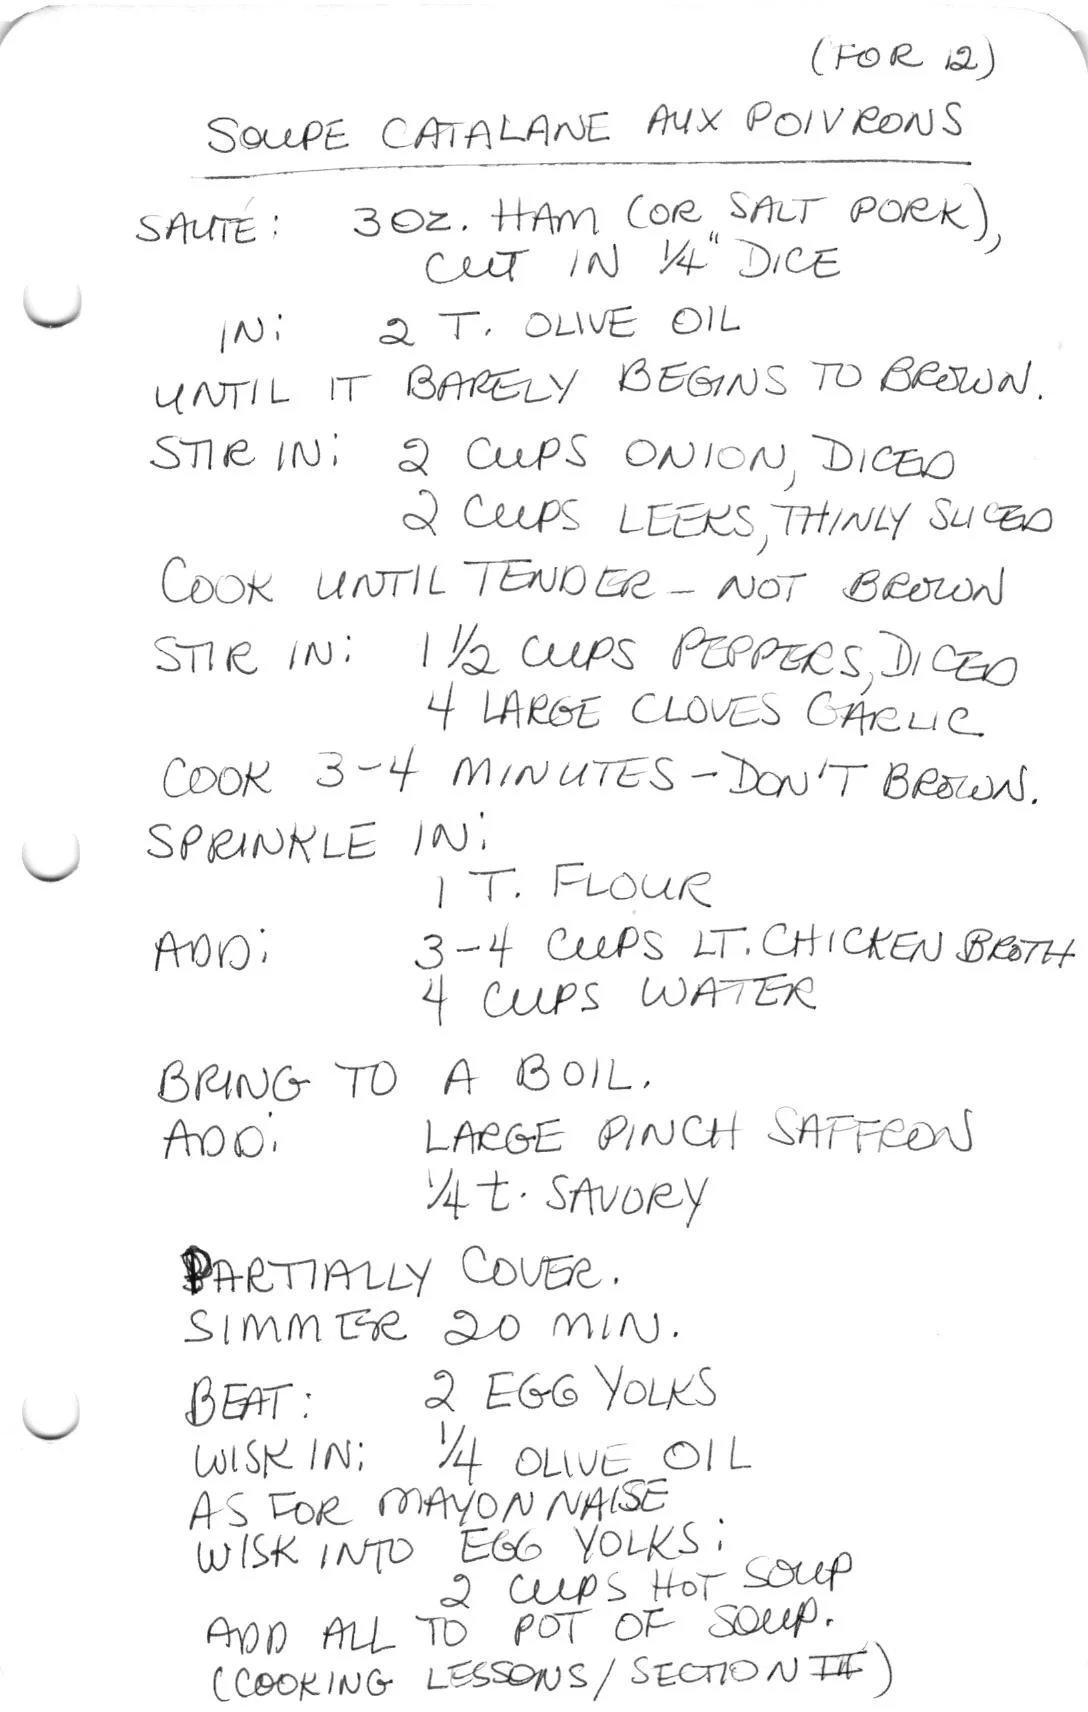 (FOR 12)
SOUPE CATALANE AUX POIVRONS
SAUTÉ: 3 OZ. HAM (OR SALT PORK),
CUT IN 1/4" DICE
IN: 2 T. OLIVE OIL
UNTIL IT BARELY BEGINS TO BROWN.
STIR IN: 2 CUPS ONION, DICED
2 CUPS LEEKS, THINLY SLICED
COOK UNTIL TENDER - NOT BROWN
STIR IN: 1 1/2 CUPS PEPPERS, DICED
4 LARGE CLOVES GARLIC
COOK 3-4 MINUTES - DON'T BROWN.
SPRINKLE IN:
1 T. FLOUR
ADD: 3-4 CUPS LT. CHICKEN BROTH
4 CUPS WATER
BRING TO A BOIL.
ADD: LARGE PINCH SAFFRON
1/4 t. SAVORY
PARTIALLY COVER.
SIMMER 20 MIN.
BEAT: 2 EGG YOLKS
WISK IN: 1/4 OLIVE OIL
AS FOR MAYONNAISE
WISK INTO EGG YOLKS:
2 CUPS HOT SOUP
ADD ALL TO POT OF SOUP.
(COOKING LESSONS/SECTION III)